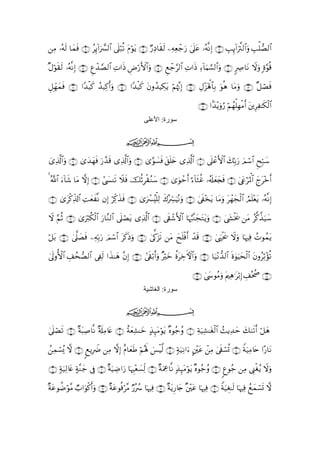 ٱلصُّلْبِ وَٱلتَّرَآئِبِ ۝ إِنَّهُۥ عَلَىٰ رَجْعِهِۦ لَقَادِرٌ ۝ يَوْمَ تُبْلَى ٱلسَّرَآئِرُ ۝ فَمَا لَهُۥ مِن
قُوَّةٍ وَلَا نَاصِرٍ ۝ وَٱلسَّمَآءِ ذَاتِ ٱلرَّجْعِ ۝ وَٱلْأَرْضِ ذَاتِ ٱلصَّدْعِ ۝ إِنَّهُۥ لَقَوْلٌ
فَصْلٌ ۝ وَمَا هُوَ بِٱلْهَزْلِ ۝ إِنَّهُمْ يَكِيدُونَ كَيْدًا ۝ وَأَكِيدُ كَيْدًا ۝ فَمَهِّلِ
ٱلْكَٰفِرِينَ أَمْهِلْهُمْ رُوَيْدًۢا ۝
سورة: الاعلى
بِسْمِ ٱللَّهِ ٱلرَّحْمَٰنِ ٱلرَّحِيمِ
سَبِّحِ ٱسْمَ رَبِّكَ ٱلْأَعْلَى ۝ ٱلَّذِى خَلَقَ فَسَوَّىٰ ۝ وَٱلَّذِى قَدَّرَ فَهَدَىٰ ۝ وَٱلَّذِىٓ
أَخْرَجَ ٱلْمَرْعَىٰ ۝ فَجَعَلَهُۥ غُثَآءً أَحْوَىٰ ۝ سَنُقْرِئُكَ فَلَا تَنسَىٰٓ ۝ إِلَّا مَا شَآءَ ٱللَّهُ
إِنَّهُۥ يَعْلَمُ ٱلْجَهْرَ وَمَا يَخْفَىٰ ۝ وَنُيَسِّرُكَ لِلْيُسْرَىٰ ۝ فَذَكِّرْ إِن نَّفَعَتِ ٱلذِّكْرَىٰ ۝
سَيَذَّكَّرُ مَن يَخْشَىٰ ۝ وَيَتَجَنَّبُهَا ٱلْأَشْقَى ۝ ٱلَّذِى يَصْلَى ٱلنَّارَ ٱلْكُبْرَىٰ ۝ ثُمَّ لَا
يَمُوتُ فِيهَا وَلَا يَحْيَىٰ ۝ قَدْ أَفْلَحَ مَن تَزَكَّىٰ ۝ وَذَكَرَ ٱسْمَ رَبِّهِۦ فَصَلَّىٰ ۝ بَلْ
تُؤْثِرُونَ ٱلْحَيَوٰةَ ٱلدُّنْيَا ۝ وَٱلْءَاخِرَةُ خَيْرٌ وَأَبْقَىٰٓ ۝ إِنَّ هَٰذَا لَفِى ٱلصُّحُفِ ٱلْأُولَىٰ
۝ صُحُفِ إِبْرَٰهِيمَ وَمُوسَىٰ ۝
سورة: الغاشية
بِسْمِ ٱللَّهِ ٱلرَّحْمَٰنِ ٱلرَّحِيمِ
هَلْ أَتَىٰكَ حَدِيثُ ٱلْغَٰشِيَةِ ۝ وُجُوهٌ يَوْمَئِذٍ خَٰشِعَةٌ ۝ عَامِلَةٌ نَّاصِبَةٌ ۝ تَصْلَىٰ
نَارًا حَامِيَةً ۝ تُسْقَىٰ مِنْ عَيْنٍ ءَانِيَةٍ ۝ لَّيْسَ لَهُمْ طَعَامٌ إِلَّا مِن ضَرِيعٍ ۝ لَّا يُسْمِنُ
وَلَا يُغْنِى مِن جُوعٍ ۝ وُجُوهٌ يَوْمَئِذٍ نَّاعِمَةٌ ۝ لِّسَعْيِهَا رَاضِيَةٌ ۝ فِى جَنَّةٍ عَالِيَةٍ ۝
لَّا تَسْمَعُ فِيهَا لَٰغِيَةً ۝ فِيهَا عَيْنٌ جَارِيَةٌ ۝ فِيهَا سُرُرٌ مَّرْفُوعَةٌ ۝ وَأَكْوَابٌ مَّوْضُوعَةٌ